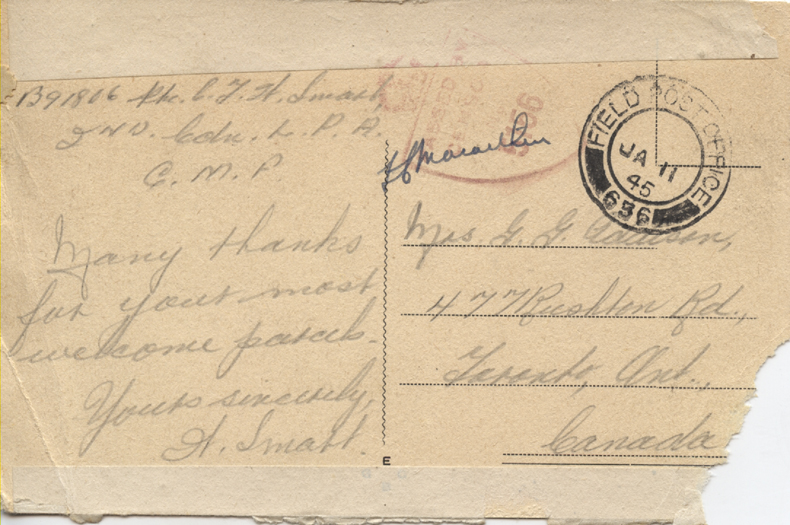 B91806 Pte. C. J. H. Smart
2ND. Cdn. L. P. A.
C. M. F
Many thanks
for your most
welcome parcels.
Yours sincerely,
H. Smart.
FIELD POST OFFICE
JA 11
45
656
Mrs G. G.
477 Rushton Rd.,
Toronto, Ont.,
Canada
E